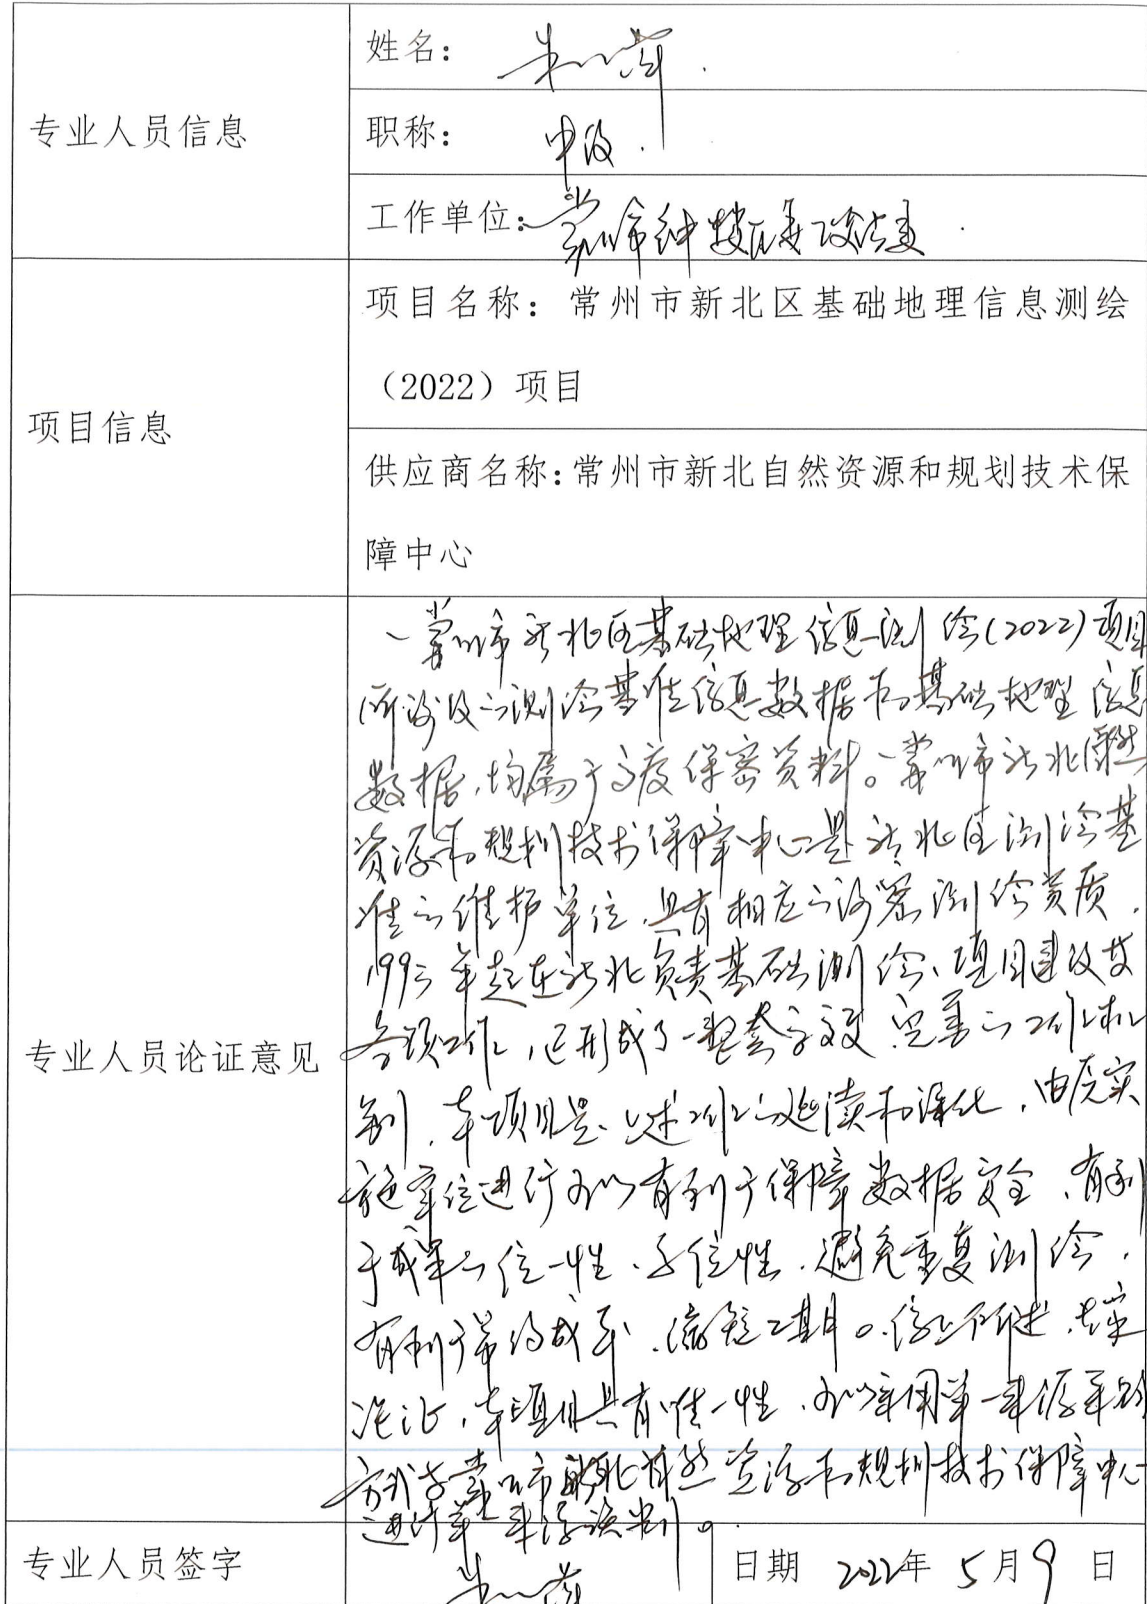 专业人员信息
姓名：
职称：中级
工作单位：常州市钟楼区
项目信息
项目名称：常州市新北区基础地理信息测绘
（2022）项目
供应商名称：常州市新北自然资源和规划技术保
障中心
专业人员论证意见
常州市新北区基础地理信息测绘(2022)项目
所涉及的测绘基准信息数据和基础地理信息
数据，均属于高度保密资料。常州市新北自然
资源和规划技术保障中心是新北区测绘基
准的维护单位，具有相应的涉密测绘资质，
年起在新北负责基础测绘、项目建设
各项工作，已形成了一整套完善的工作机
制，本项目是上述工作的延续和深化，由原实
施单位进行可以有利于保障数据安全，有利
于成果的统一性，避免重复测绘，
有利于节约成本、缩短工期。综上所述，专家
论证，本项目具有唯一性，可以采用单一来源采购
方式与常州市新北自然资源和规划技术保障中心
进行单一来源谈判。
专业人员签字
日期 2022年 5月9日